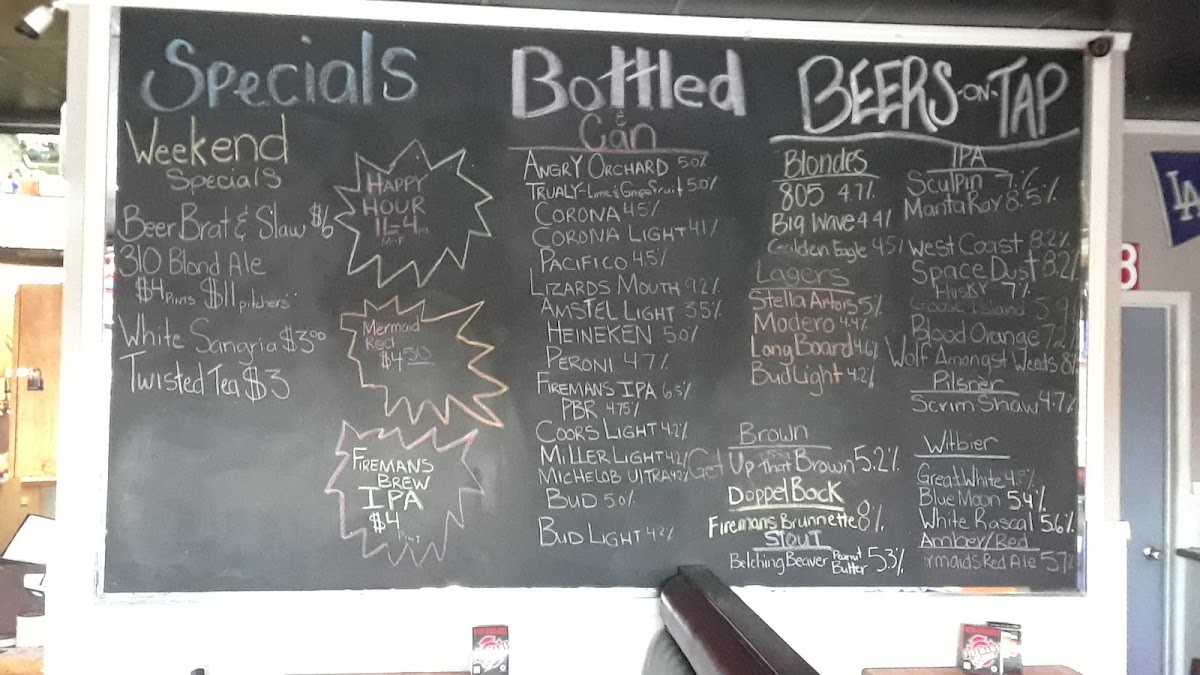 Specials
Weekend
Specials
Beer Brat & Slaw $6
310 Blond Ale
$4 Pints $11 pitchers
White Sangria $3.00
Twisted Tea $3
HAPPY
HOUR
11-4
M-F
Mermaid
Red
$4.50
FIREMANS
BREW
IPA
$4
PINT
Bottled
&
Can
ANGRY ORCHARD 5.0%
TRUALY-Lime & Grapefruit 5.0%
CORONA 4.5%
CORONA LIGHT 4.1%
PACIFICO 4.5%
LIZARDS MOUTH 9.2%
AMSTEL LIGHT 3.5%
HEINEKEN 5.0%
PERONI 4.7%
FIREMANS IPA 6.5%
PBR 4.75%
COORS LIGHT 4.2%
MILLER LIGHT 4.2%
MICHELOB ULTRA 4.2%
BUD 5.0%
BUD LIGHT 4.2%
BEERS-ON-TAP
Blondes
805 4.7%
Big Wave 4.4%
Golden Eagle 4.5%
Lagers
Stella Artois 5%
Modero 4.4%
Long Board 4.6%
Bud Light 4.2%
Brown
Get Up That Brown 5.2%
Doppel Bock
Firemans Brunnette 8%
STOUT
Belching Beaver Peanut Butter 5.3%
IPA
Sculpin 7%
Manta Ray 8.5%
West Coast 8.2%
Space Dust 8.2%
Husky 7%
Goose Island 5.9%
Blood Orange 7.2%
Wolf Amongst Weeds 8%
Pilsner
Scrim Shaw 4.7%
Witbier
Great White 4.8%
Blue Moon 5.4%
White Rascal 5.6%
Amber/Red
rmaids Red Ale 5.7%
LA
8